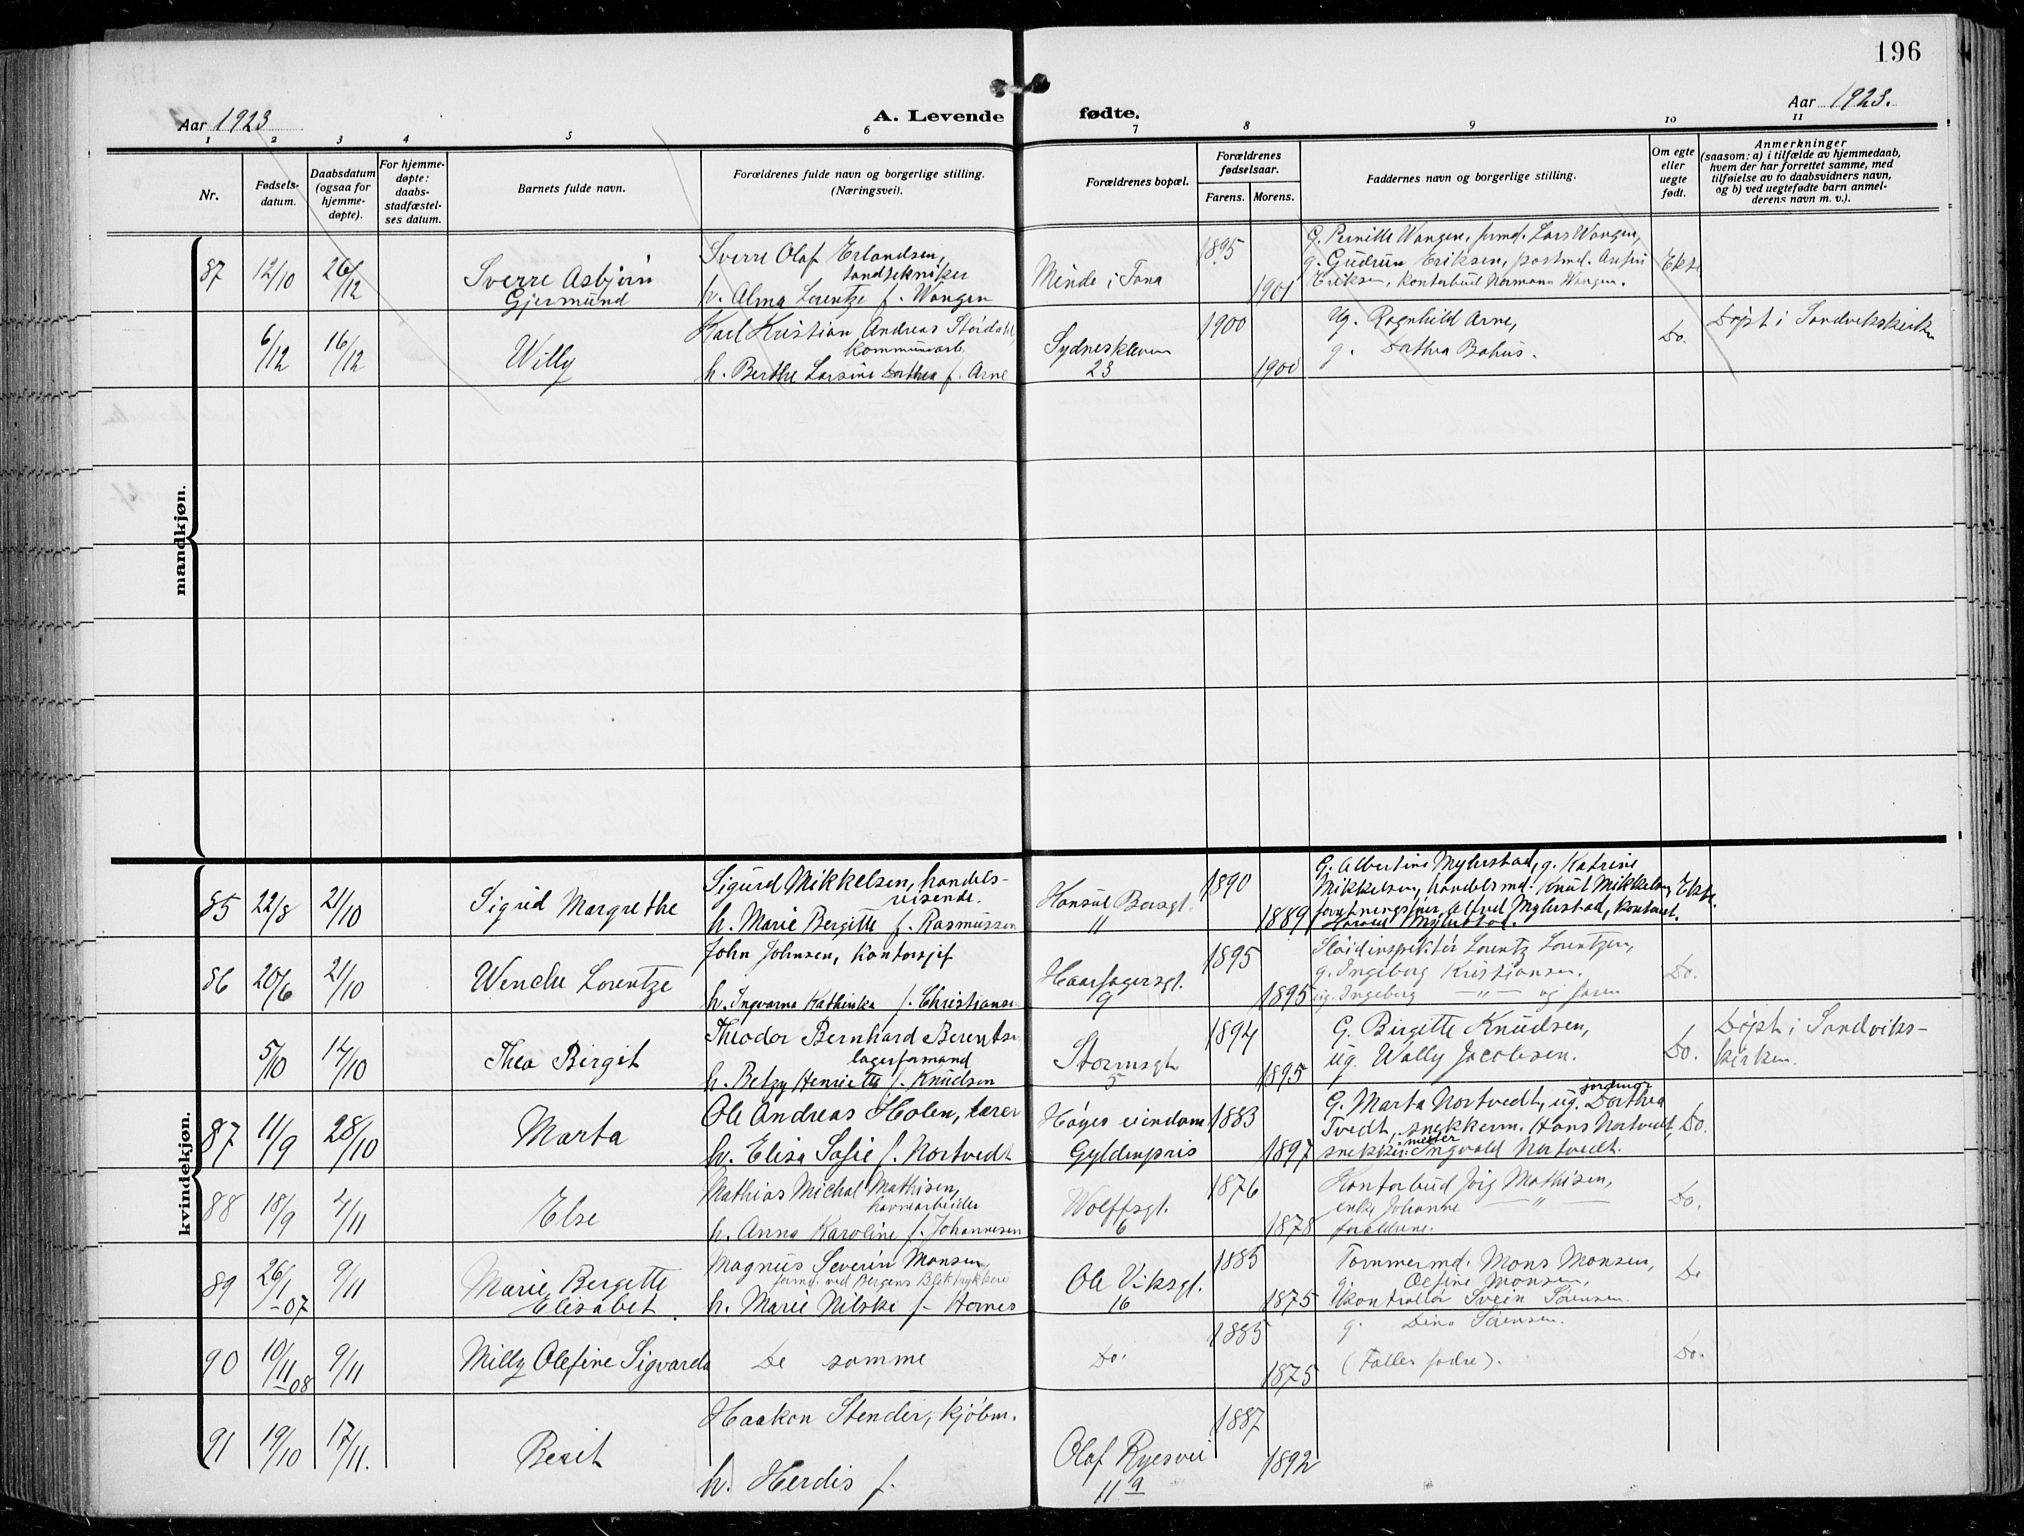 196
Aar 1923
A. Levende
fødte.
Aar 1923.
1 2 3 4 5 6 7 8 9 10 11
Nr.
Fødsels-
datum.
Daabsdatum
(ogsaa for
hjemme-
døpte).
For hjemme-
døpte:
daabs-
stadfæstel-
ses datum.
Barnets fulde navn.
Forældrenes fulde navn og borgerlige stilling.
(Næringsvei).
Forældrenes bopæl.
Forældrenes
fødselsaar.
Farens. Morens.
Faddernes navn og borgerlige stilling.
Om egte
eller
uegte
født.
Anmerkninger
(saasom: a) i tilfælde av hjemmedaab,
hvem der har forrettet samme, med
tilføielse av to daabsvidners navn,
og b) ved uegtefødte barn anmel-
derens navn m. v.).
mandkjøn.
87 12/10 26/12
Sverre Asbjørn
Gjermund
Sverre Olaf Erlandsen,
tandtekniker
h. Alma Lorentze f. Wangen
Minde i Fana
1895
1901
G. Pernille Wangen, formd. Lars Wangen,
g. Gudrun Eriksen, postmd.
Eriksen, kontorbud Normann Wangen.
Ekte
6/12 16/12
Willy
Karl Kristian Andreas Støjdahl,
kommunearb.
h. Berthe Larsine Dorthea f. Arne
Sydneskleven
23
1900
1900
Ug. Ragnhild Arne,
g. Dorthea Bahus.
Do.
Døpt i Sandvikskirken
kvindekjøn.
85 22/8 21/10
Sigrid Margrethe
Sigurd Mikkelsen, handels-
reisende.
h. Marie Bergitte f. Rasmussen
Konsul Børsgt.
11
1890
1889
G. Albertine Myhrstad, g. Katrine
Mikkelsen, handelsmd. Knut Mikkelsen,
Alfred Myhrstad, kontorist.
Harald Myhrstad.
Ekte.
86 20/6 21/10
Wenche Lorentze
John Johnsen, Kontorsjef
h. Ingvarna Kathinka f. Christiansen
Haarfagersgt.
9
1895
1895
Sløidinspektør Lorentz Lorentzen,
g. Ingeborg Kristiansen.
ug. Ingeborg —"— og faren
Do.
5/10 14/10
Thea Birgit
Theodor Bernhard Berentsen
lagerformand
h. Betzy Henriette f. Knudsen
Stormsgt
5
1894
1895
G. Birgitte Knudsen,
ug. Wally Jacobsen.
Do.
Døpt i Sandviks-
kirken.
87 11/9 28/10
Marta
Ole Andreas Holen, lærer
h. Elisa Sofie f. Nortvedt
Høyes eiendom
Gyldenpris
1883
1897
G. Marta Nortvedt, ug. jordmor Dorthea
Tvedt, snekkerm. Hans Nortvedt,
snekkermester Ingvald Nortvedt.
Do.
88 18/9 4/11
Else
Mathias Michal Mathisen,
havnearbeider
h. Anna Karoline f. Johannesen
Wolffsgt.
6
1876
1878
Kontorbud Jørg Mathisen,
enke Johanne —"—
foreldrene.
Do.
89 26/1 -07 9/11
Marie Bergette
Elisabet.
Magnus Severin Monsen,
formd. ved Bergens Bliktrykkeri
h. Marie Nilske f. Hornes
Ole Viksgt.
16
1885
1875
Tømmermd. Mons Monsen,
g. Olefine Monsen,
kontrollør Svein Sørensen.
g. Dina Sørensen.
Do
90 10/11 -08 9/11
Milly Olefine Sigvarda
De samme
Do.
1885
1875
(Fælles fadre).
Do.
91 19/10 17/11.
Berit
Haakon Stender, kjøbm.
h. Herdis f.
Olaf Ryesvei
11a
1887
1892